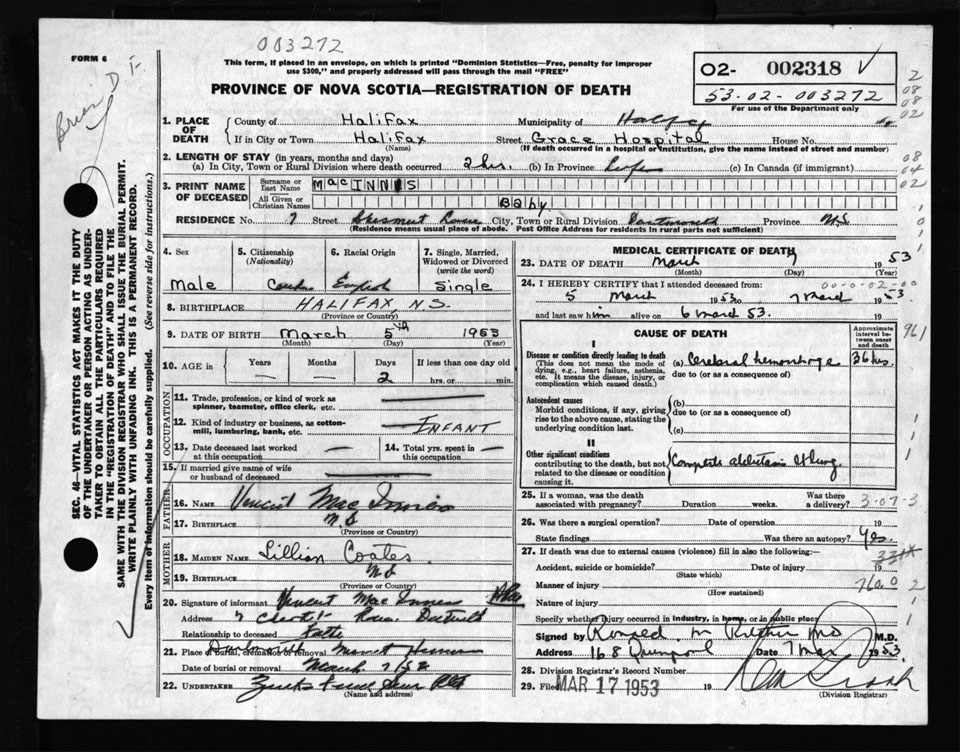 003272
FORM 6
This form, if placed in an envelope, on which is printed "Dominion Statistics—Free, penalty for improper
use $300," and properly addressed will pass through the mail "FREE"
02- 002318
53-02-003272
For use of the Department only
PROVINCE OF NOVA SCOTIA—REGISTRATION OF DEATH
1. PLACE OF DEATH
County of Halifax Municipality of Halifax
If in City or Town Halifax Street Grace Hospital House No.
(Name) (If death occurred in a hospital or institution, give the name instead of street and number)
2. LENGTH OF STAY (in years, months and days)
(a) In City, Town or Rural Division where death occurred 2 hrs. (b) In Province Life (c) In Canada (if immigrant)
3. PRINT NAME OF DECEASED
Surname or Last Name MacINNIS
All Given or Christian Names Baby
RESIDENCE No. 7 Street City, Town or Rural Division Dartmouth Province N.S.
(Residence means usual place of abode. Post Office Address for residents in rural parts not sufficient)
4. Sex Male
5. Citizenship (Nationality)
6. Racial Origin English
7. Single, Married, Widowed or Divorced (write the word) Single
8. BIRTHPLACE HALIFAX N.S.
(Province or Country)
9. DATE OF BIRTH March 5th 1953
(Month) (Day) (Year)
10. AGE in Years — Months — Days 2 If less than one day old hrs. or min.
OCCUPATION
11. Trade, profession, or kind of work as
spinner, teamster, office clerk, etc.
12. Kind of industry or business, as cotton-
mill, lumbering, bank, etc. INFANT
13. Date deceased last worked at this occupation —
14. Total yrs. spent in this occupation —
15. If married give name of wife
or husband of deceased —
FATHER
16. NAME Vincent MacInnis
17. BIRTHPLACE N.S.
(Province or Country)
MOTHER
18. MAIDEN NAME Lillian Coates
19. BIRTHPLACE N.S.
(Province or Country)
20. Signature of informant Vincent MacInnis
Address 7
Relationship to deceased Father
21. Place of burial, cremation or removal Dartmouth Mount Hermon
Date of burial or removal March 7
22. UNDERTAKER
(Name and address)
MEDICAL CERTIFICATE OF DEATH
23. DATE OF DEATH March 1953
(Month) (Day) (Year)
24. I HEREBY CERTIFY that I attended deceased from:
5 March 1953 to 7 March 1953.
and last saw him alive on 6 March 53.
CAUSE OF DEATH
Approximate interval between onset and death
I
Disease or condition directly leading to death
(This does not mean the mode of
dying, e.g., heart failure, asthenia,
etc. It means the disease, injury, or
complication which caused death.)
(a) Cerebral hemorrhage 36 hrs.
due to (or as a consequence of)
Antecedent causes
Morbid conditions, if any, giving
rise to the above cause, stating the
underlying condition last.
(b)
due to (or as a consequence of)
(c)
II
Other significant conditions
contributing to the death, but not
related to the disease or condition
causing it.
25. If a woman, was the death
associated with pregnancy? Duration weeks. Was there a delivery?
3-07-3
26. Was there a surgical operation? Date of operation 19
State findings Was there an autopsy? Yes
27. If death was due to external causes (violence) fill in also the following:—
Accident, suicide or homicide? Date of injury 19
(State which)
Manner of injury
(How sustained)
7600
Nature of injury
Specify whether injury occurred in industry, in home, or in public place
Signed by M.D.
Address 168 Date 7 Mar 1953.
28. Division Registrar's Record Number
29. Filed MAR 17 1953 19
(Division Registrar)
SEC. 46—VITAL STATISTICS ACT MAKES IT THE DUTY
OF THE UNDERTAKER OR PERSON ACTING AS UNDER-
TAKER TO OBTAIN ALL THE PARTICULARS REQUIRED
IN THE "REGISTRATION OF DEATH" AND TO FILE THE
SAME WITH THE DIVISION REGISTRAR WHO SHALL ISSUE THE BURIAL PERMIT.
WRITE PLAINLY WITH UNFADING INK. THIS IS A PERMANENT RECORD.
Every item of information should be carefully supplied. (See reverse side for instructions.)